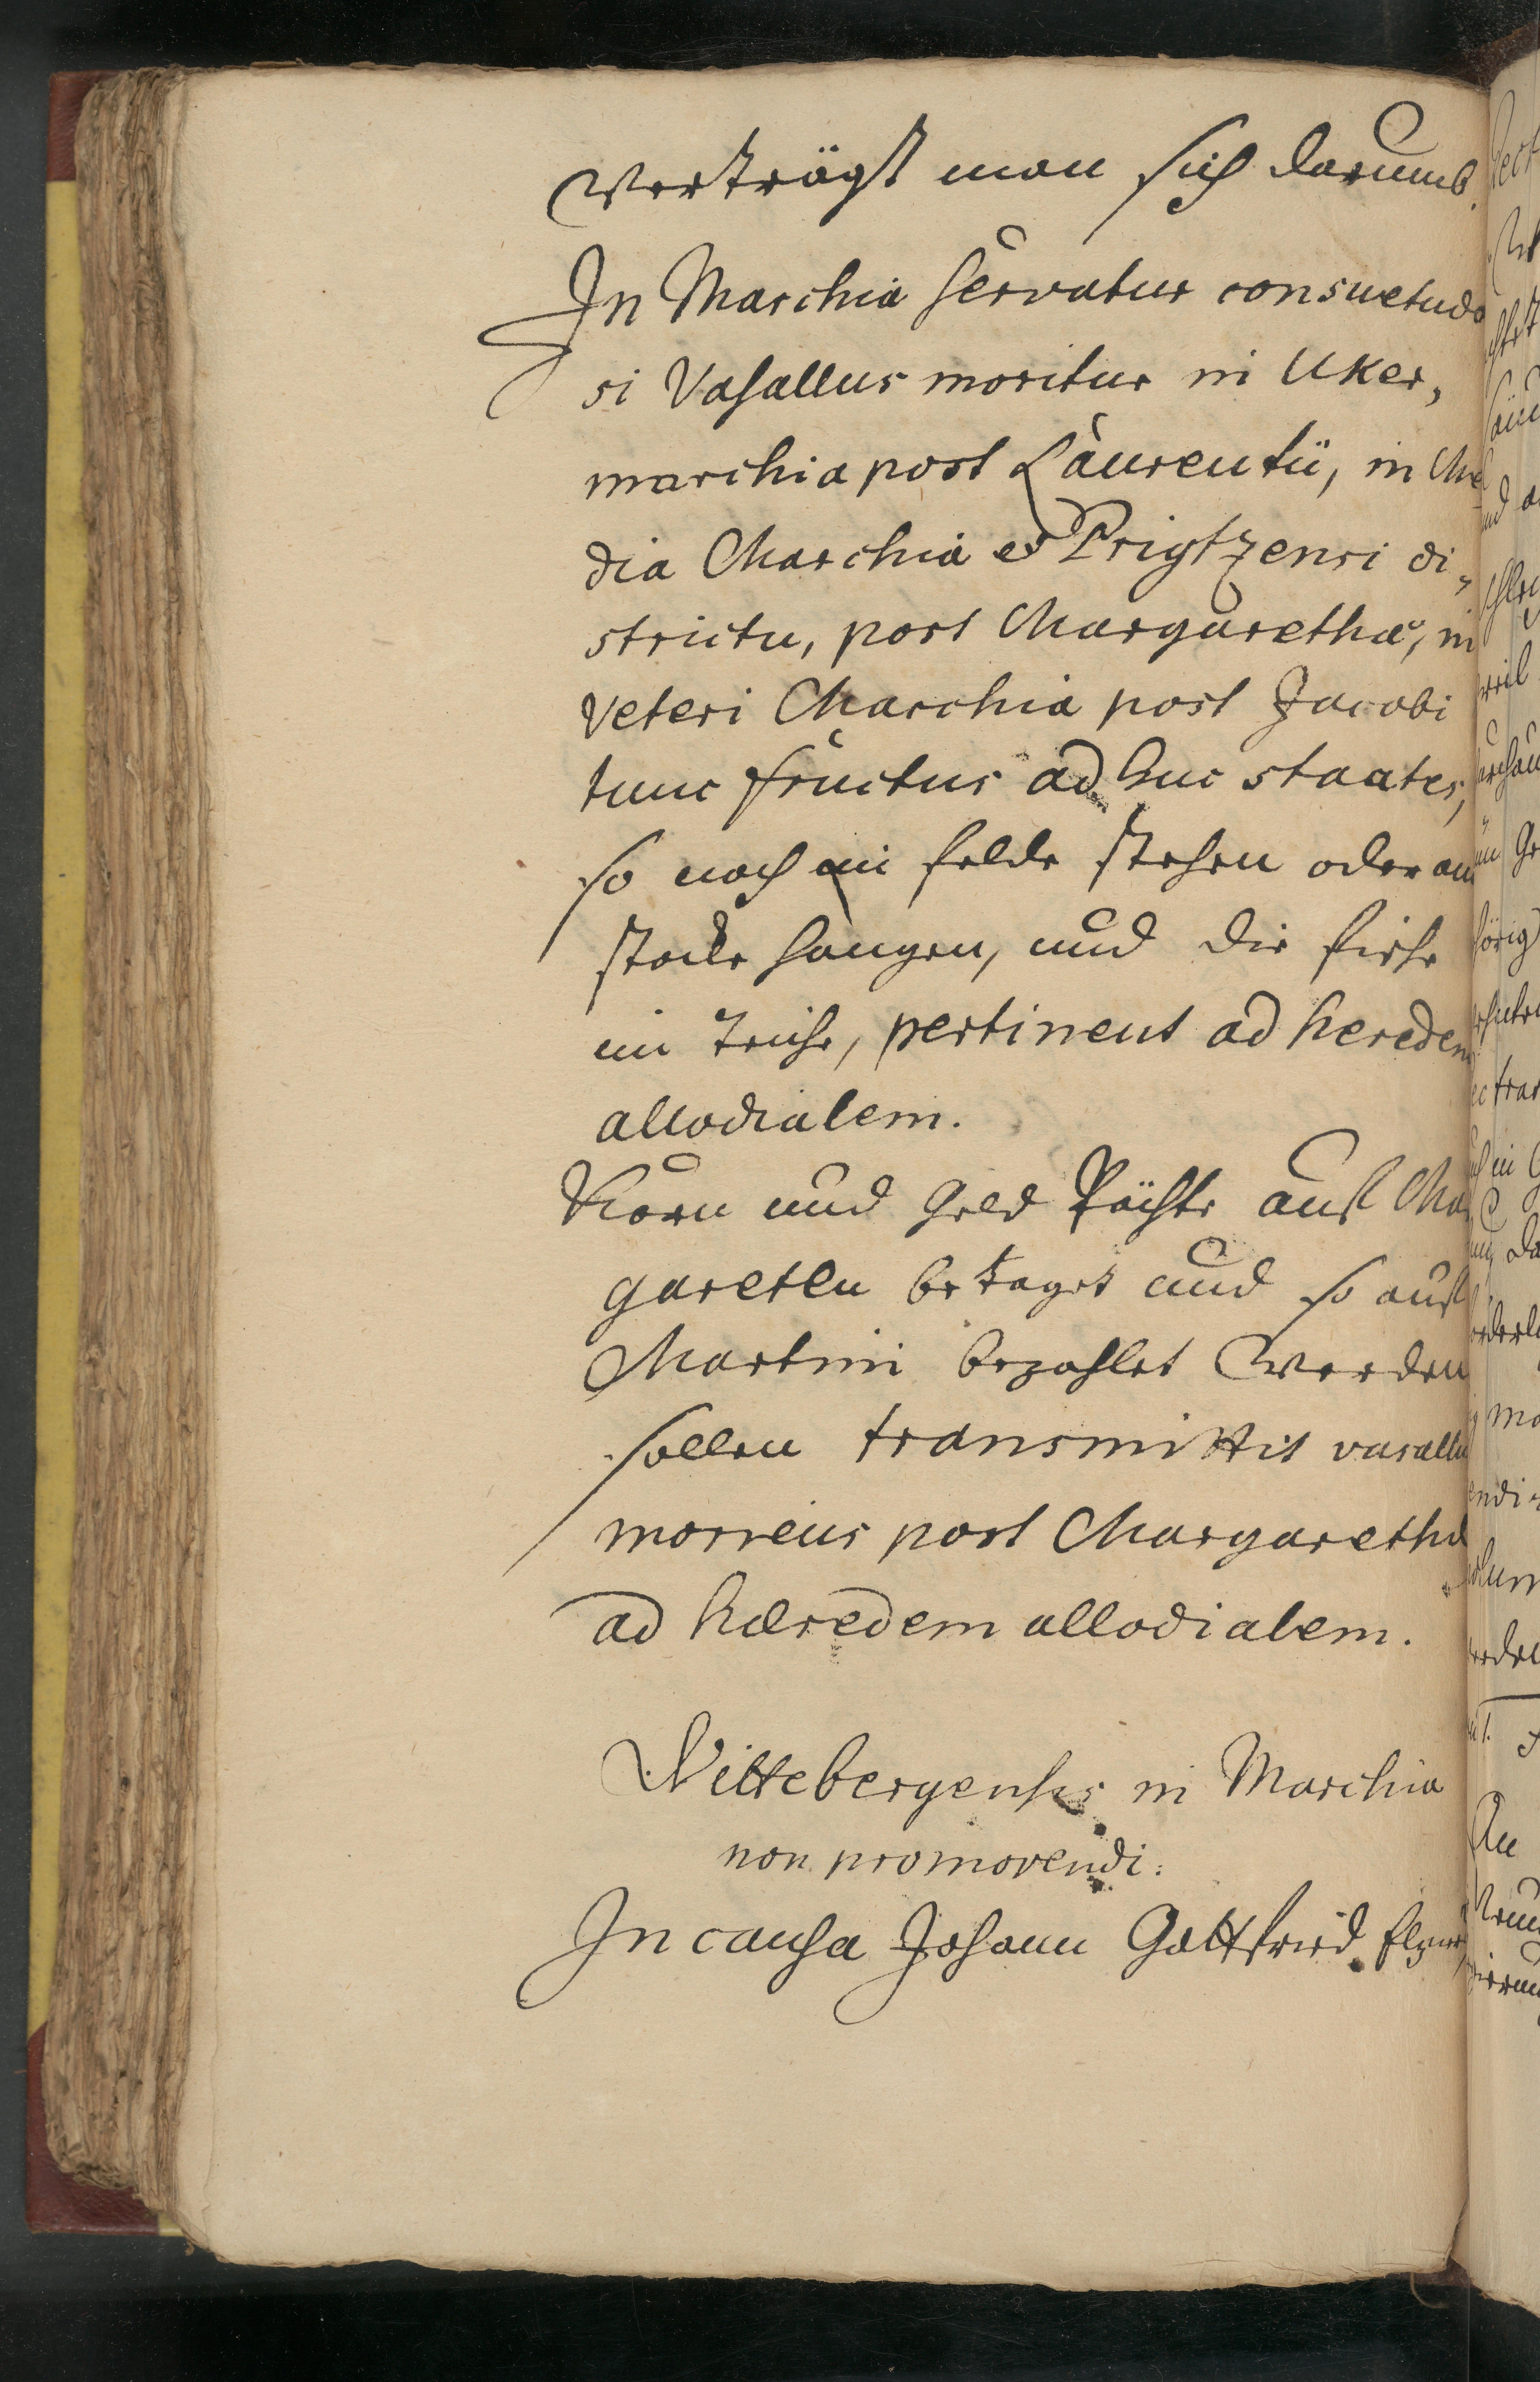 Verträgt man sich darumb.
In Marchia servatur consuetudo
si Vasallus moritur in Uker,
marchia post Laurentii, in Me
dia Marchia et Prigtzensi di,
strictu, post Margarethæ, in
Veteri Marchia post Jacobi
tunc fructus ad huc staates,
so noch im felde stehen oder am
stocke hangen, und die fische
im teiche, pertinent ad heredem
allodialem.
Korn und Geld Pächte auf Mar
gareten betaget und so auf
Martini bezahlet werden
sollen transmittit vasallu
moriens post Margaretha
ad hæredem allodialem.
Wittebergenses in Marchia
non promovendi.
In causa Johann Gottfried